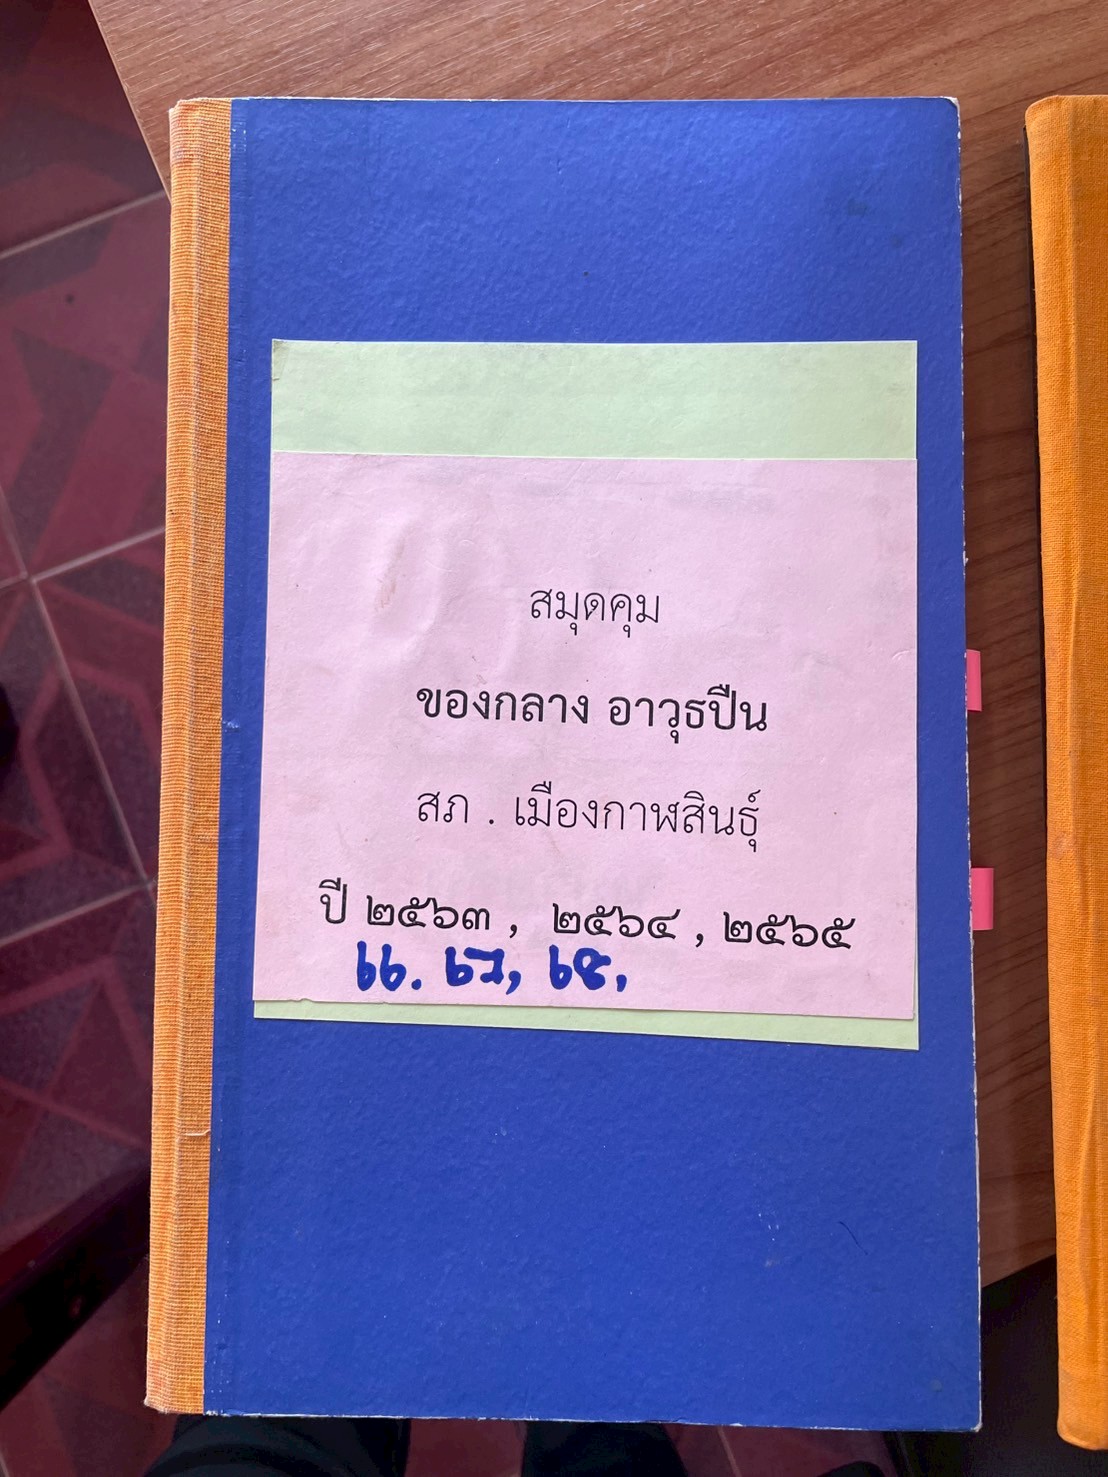 สมุดคุม
ของกลาง อาวุธปืน
สภ . เมืองกาฬสินธุ์
ปี ๒๕๖๓ , ๒๕๖๔ , ๒๕๖๕
๖๖. ๖๗, ๖๘,